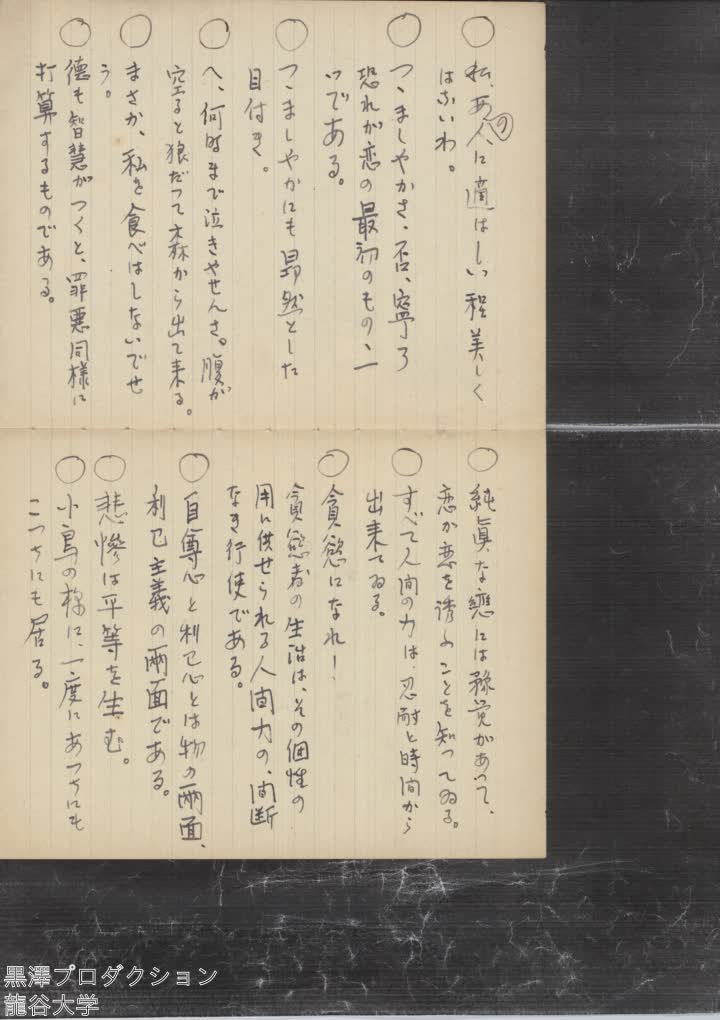 ○ 私、あの人に適はしい程美しく
はないわ。
○ つゝましやかさ、否、寧ろ
恐れが恋の最初のもの、一
つである。
○ つゝましやかにも昂然とした
目付き。
○ へ、何時まで泣きやせんさ。腹が
空ると狼だつて森から出て来る。
○ まさか、私を食べはしないでせ
う。
○ 徳も智慧がつくと、罪悪同様に
打算するものである。
○ 純眞な戀には豫覚があつて、
恋が恋を誘ふことを知つてゐる。
○ すべて人間の力は、忍耐と時間から
出来てゐる。
○ 貪慾になれ!
貪慾者の生活は、その個性の
用に供せられる人間力の、間断
なき行使である。
○ 自尊心と利己心とは物の両面、
利己主義の両面である。
○ 悲惨は平等を生む。
○ 小鳥の様に、一度にあつちにも
こつちにも居る。
黒澤プロダクション
龍谷大学